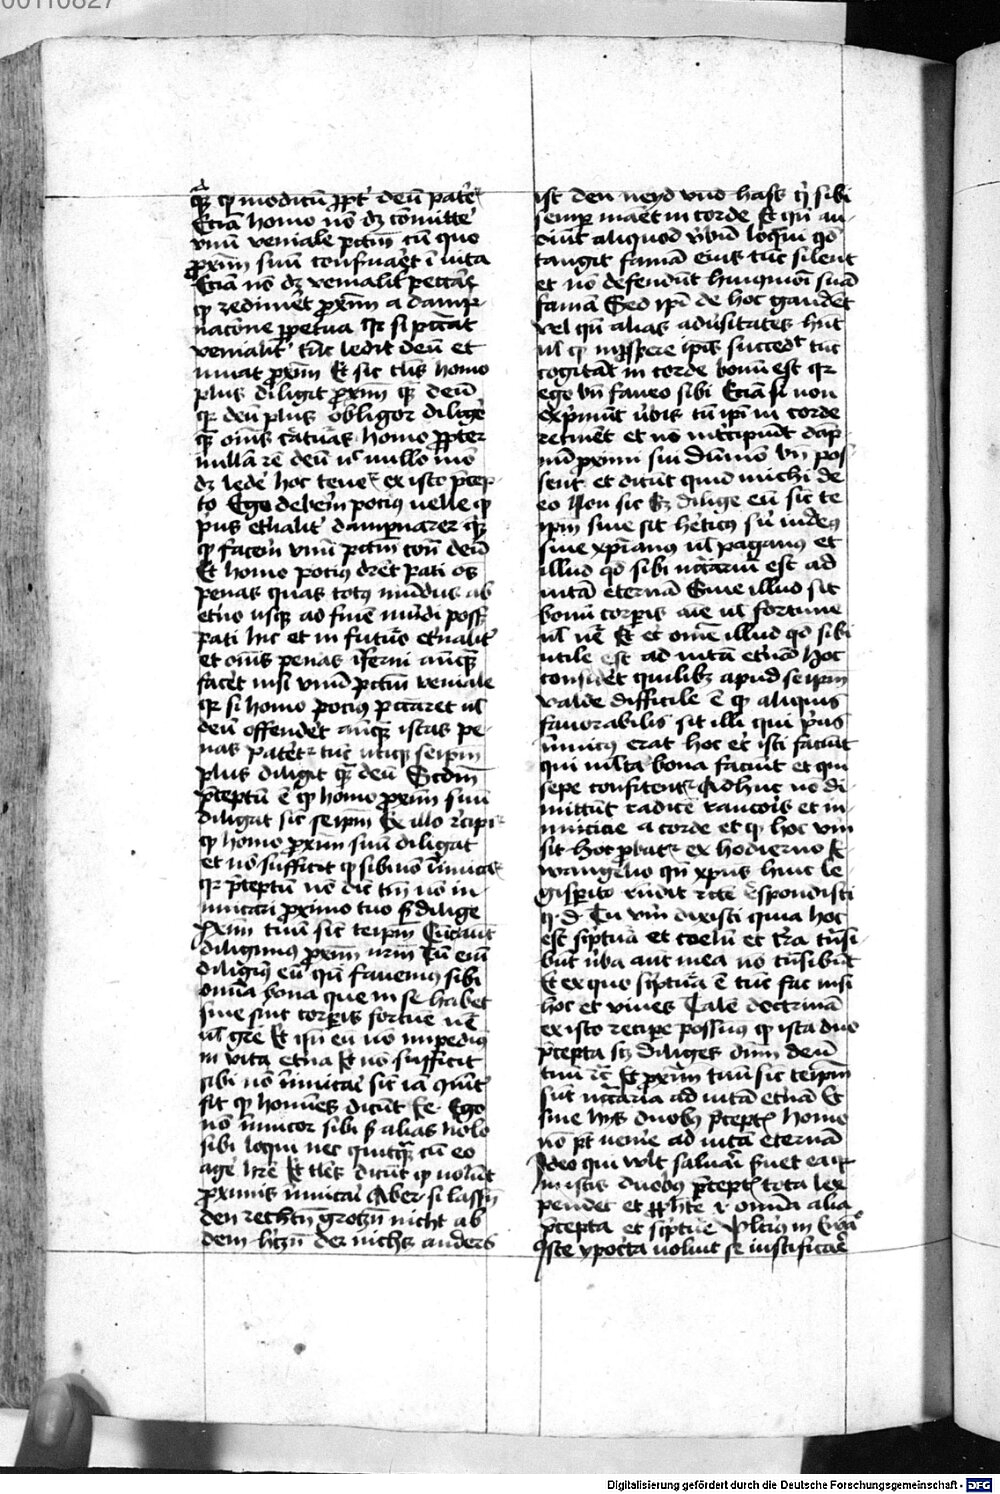 00110827
q̄ꝫ ꝙ modicū ꝓpt' deū patēr
Eciā homo nō dꝫ cōmitte'
vnū veniale pctm̄ cū quo
ꝓximū suū confuaret ī vita
Eciā nō dꝫ venialit' peccār
ꝙ redimēt ꝓximū a damp-
nacōne ꝑpetua qr si peccat
venialit' tūc ledit deū et
iuuat ꝓximū Et sic tl̄is homo
plus diligit ꝓximū qꝫ deū
qr deū plus obligor dilige'
qꝫ om̄s c̄aturas homo ꝓpter
nullā rē deū uł nullo mō
dꝫ lede' hoc tenet' ex isto p̄cep-
to Ego deberem potius uelle ꝙ
prius et'nalit' dampnarer qꝫ
ꝙ facerem vnū pctm̄ con̄ deū
Et homo potius dr̄et pati oēs
penas quas totus mūdus ab
et'no usqꝫ ad finē mūdi possꝫ
pati hic et in futuro et'nalit'
et om̄s penas īferni anteqꝫ
facet nisi vnū pctm̄ veniale
qr si homo potius peccaret uł
deū offendet anteqꝫ istas pe-
nas patēt' tūc utiqꝫ seip̄m
plus diligit qꝫ deū Scdm̄
p̄ceptū ē ꝙ homo ꝓximū suū
diligat sic seip̄m Ex illo recipit'
ꝙ homo ꝓximū suū diligat
et nō sufficit ꝙ sibi nō inimicat'
qr p̄ceptū nō dic̄ tm̄ nō in-
imicari ꝓximo tuo ꝫ dilige
ꝓximū tuū sic teip̄m Cū aūt
diligimus ꝓximū nr̄m Tūc enī
diligimꝰ eū qn̄ fauemus sibi
omnia bona que in se habet
siue sint corporis fortune n̄e
uł gr̄e Et ipsū eū nō impedimꝰ
in vita et'na Et nō sufficit
sibi nō inimicari sic iā quīt'
fit ꝙ homines dicūt Ee Ego
nō inimicor sibi ꝫ alias nolo
sibi loqui nec quicqꝫ cū eo
age' hr̄e Et tl̄es dicūt ꝙ nolūt
ꝓximis inimicari Aber si lassn̄
den rechtn̄ grotzn̄ nicht ab
dem hrtzn̄ der nichtz anders
ist den neyd vnd hass qi sibi
semꝑ manet in corde Et qn̄ au-
diūt aliquod v'bū loqui qd̄
tangit famā eius tūc silent
et nō defendūt huiusmōi suā
famā Sed ip̄i de hoc gaudēt
vel qn̄ alias aduersitates hn̄t
uł ꝙ in ꝓspere ip̄is succedit tūc
cogitāt in corde bonū est qr
ego bn̄ faueo sibi Eciā si non
exprimūt v'bis tn̄ ip̄i in corde
retinēt et nō intercipiūt damp-
nū ꝓximi sui dūmō bn̄ pos-
sent et dicūt quid michi de
eo Non sic ꝫ dilige eū sic te
ip̄m siue sit heticꝰ siue iudeꝰ
siue xp̄ianus uł paganus et
illud qd̄ sibi nēcāriū est ad
vitā eternā Siue illud sit
bonū corporis aīe uł fortune
uł n̄e Et et omē illud qd̄ sibi
utile est ad vitā et'nā Hoc
considet quilibꝫ apud seip̄m
valde difficile ē ꝙ aliquis
fauorabilis sit illi qui prius
inimicus erat hoc et isti faciūt
qui multa bona faciūt et qui
sepe confitentr̄ Adhuc nō di-
mittūt radicē rancoris et in-
imicicie a corde et ꝙ hoc vm̄
sit Hoc ꝓbatur ex hodierno E-
wangelio qn̄ xp̄us huic le-
gisꝑito rn̄dit recte respondisti
q. d. Tu vm̄ dixisti quia hoc
est sc̄ptura et coelū et t'ra t̄nsi-
būt v'ba aut mea nō t̄nsibūt
Et ex quo sc̄ptura ē tūc fac nisi
hoc et viues Talē doctrinā
ex isto recipe possumꝰ ꝙ ista duo
p̄cepta scꝫ diliges dn̄m deū
tuū etc̄ Et ꝓximū tuū sic teip̄m
sunt nc̄caria ad vitā et'nā Et
sine hijs duobꝰ p̄ceptis homo
nō pt̄ venire ad vitā eternā
Ideo qui vult saluari s'uet ea qr
in istis duobus p̄ceptis tota lex
pendet et ꝓphete r omnia alia
p̄cepta et sc̄pture Ultīꝰ in Ewā°
Iste ypocrita voluit se iustificare
Digitalisierung gefördert durch die Deutsche Forschungsgemeinschaft - DFG